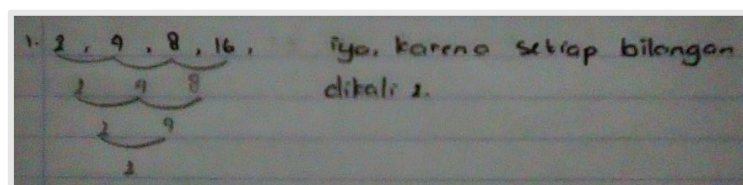 1. 2, 4, 8, 16, iya, karena setiap bilangan
2 4 8 dikali 2.
2 4
2